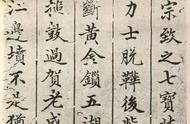 宗致之七寶
力士脫鞾後些
斷黃金鎖五湖
過賀老成
邊墳不是猶